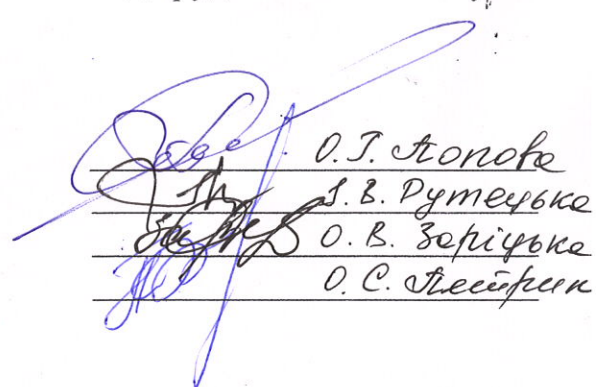 О. Г. Попова
І. В. Рутецька
О. В. Заріцька
О. С. Петрик